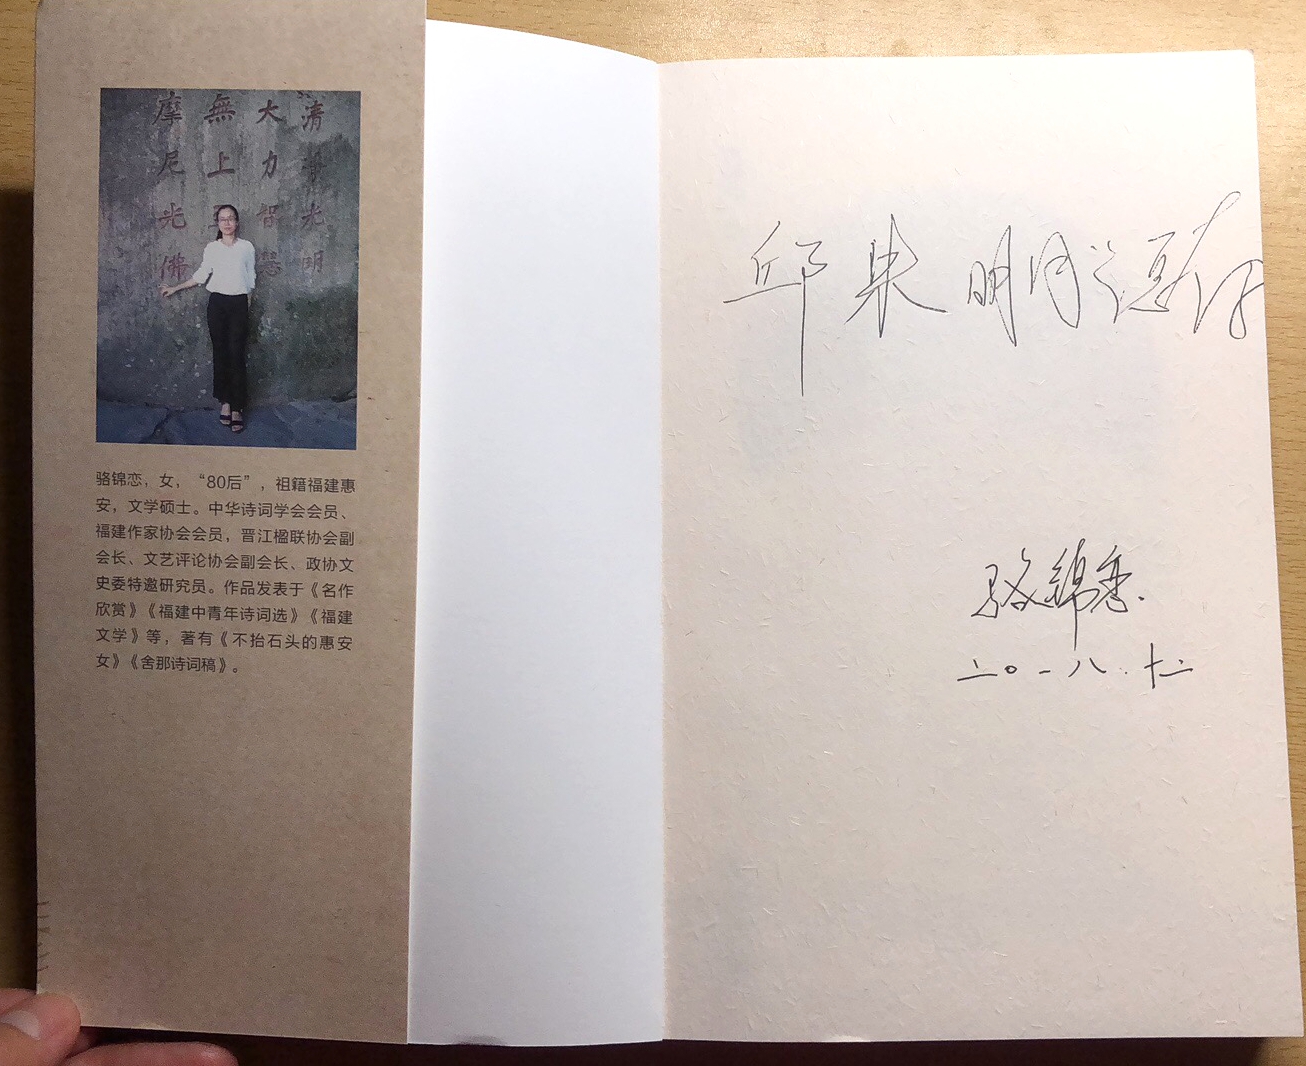 清淨光明
大力智慧
無上
摩尼光佛
骆锦恋，女，“80后”，祖籍福建惠
安，文学硕士。中华诗词学会会员、
福建作家协会会员，晋江楹联协会副
会长、文艺评论协会副会长、政协文
史委特邀研究员。作品发表于《名作
欣赏》《福建中青年诗词选》《福建
文学》等，著有《不抬石头的惠安
女》《舍那诗词稿》。
邱 明月
骆锦恋
二〇一八.十二